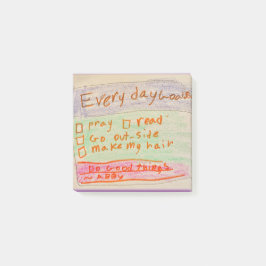 Every day Goals
pray read
Go out-side
make my hair
Do Good things
~ ABBY